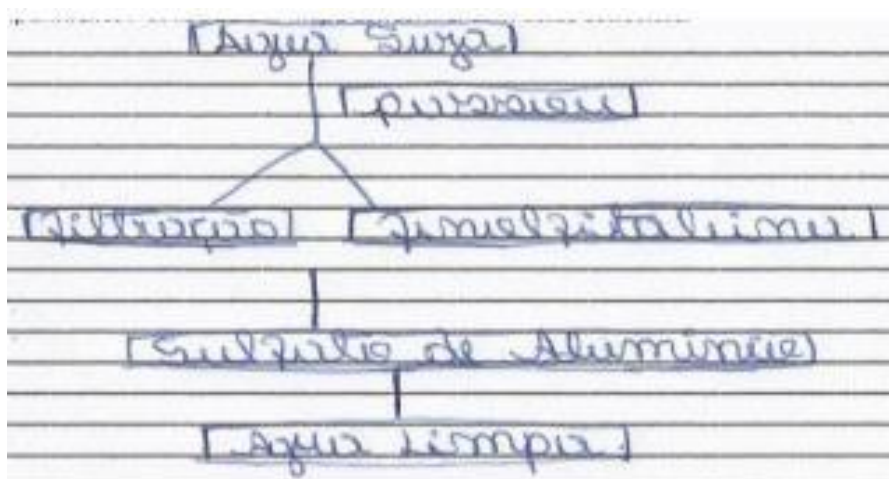 Agua Suza
Filtração Finolfitaleina
Sulfato de Aluminio
Agua Limpa